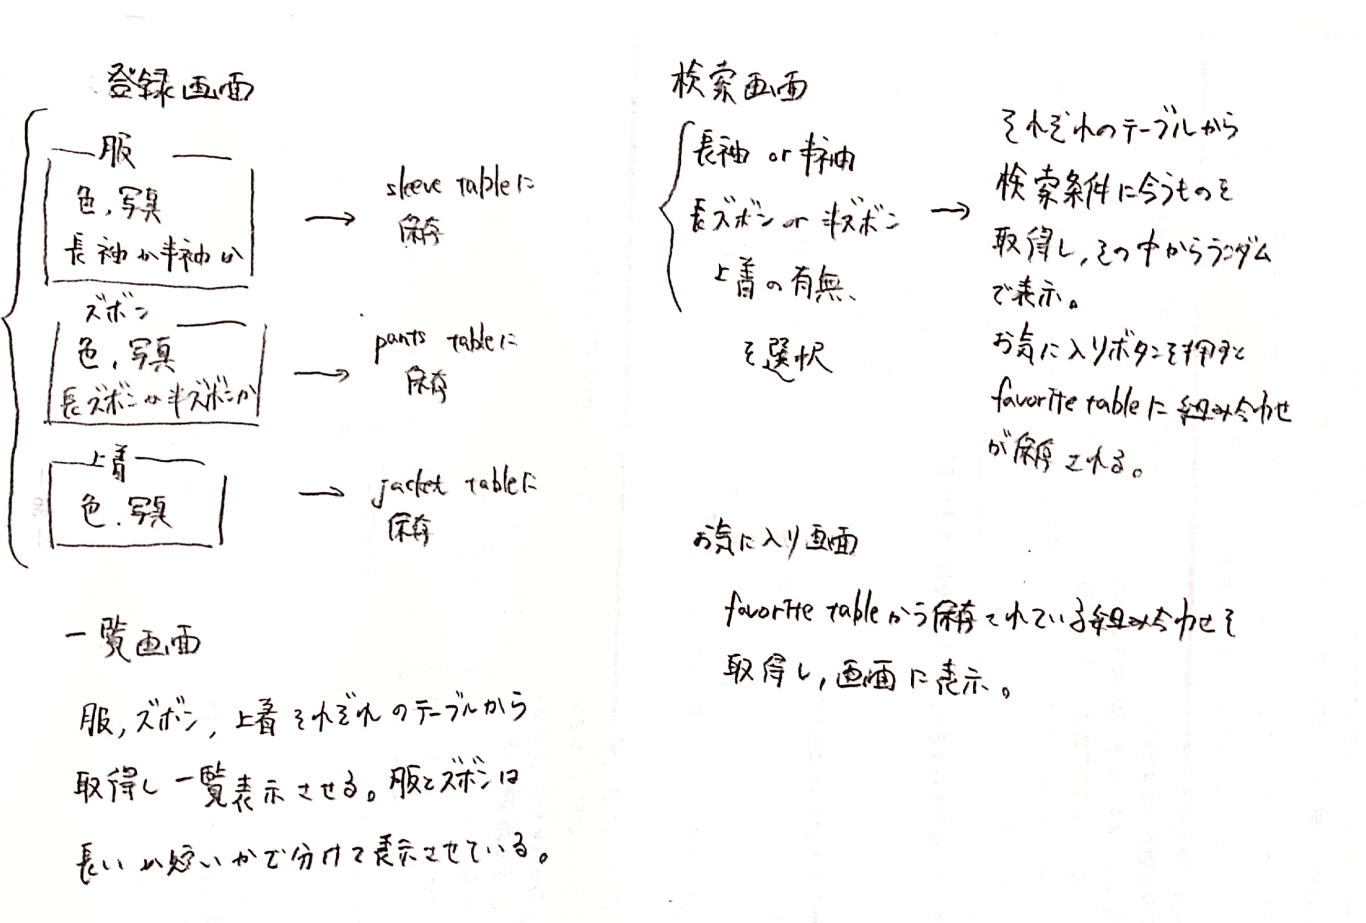 登録画面
服
色、写真
長袖か半袖か
sleeve tableに
保存
ズボン
色、写真
長ズボンか半ズボンか
pants tableに
保存
上着
色、写真
jacket tableに
保存
一覧画面
服,ズボン,上着それぞれのテーブルから
取得し一覧表示させる。服とズボンは
長いか短いかで分けて表示させている。
検索画面
長袖 or 半袖
長ズボン or 半ズボン
上着の有無、
を選択
それぞれのテーブルから
検索条件に合うものを
取得し,その中からランダム
で表示。
お気に入りボタンを押すと
favorite tableに組み合わせ
が保存される。
お気に入り画面
favorite tableから保存されている組み合わせを
取得し,画面に表示。